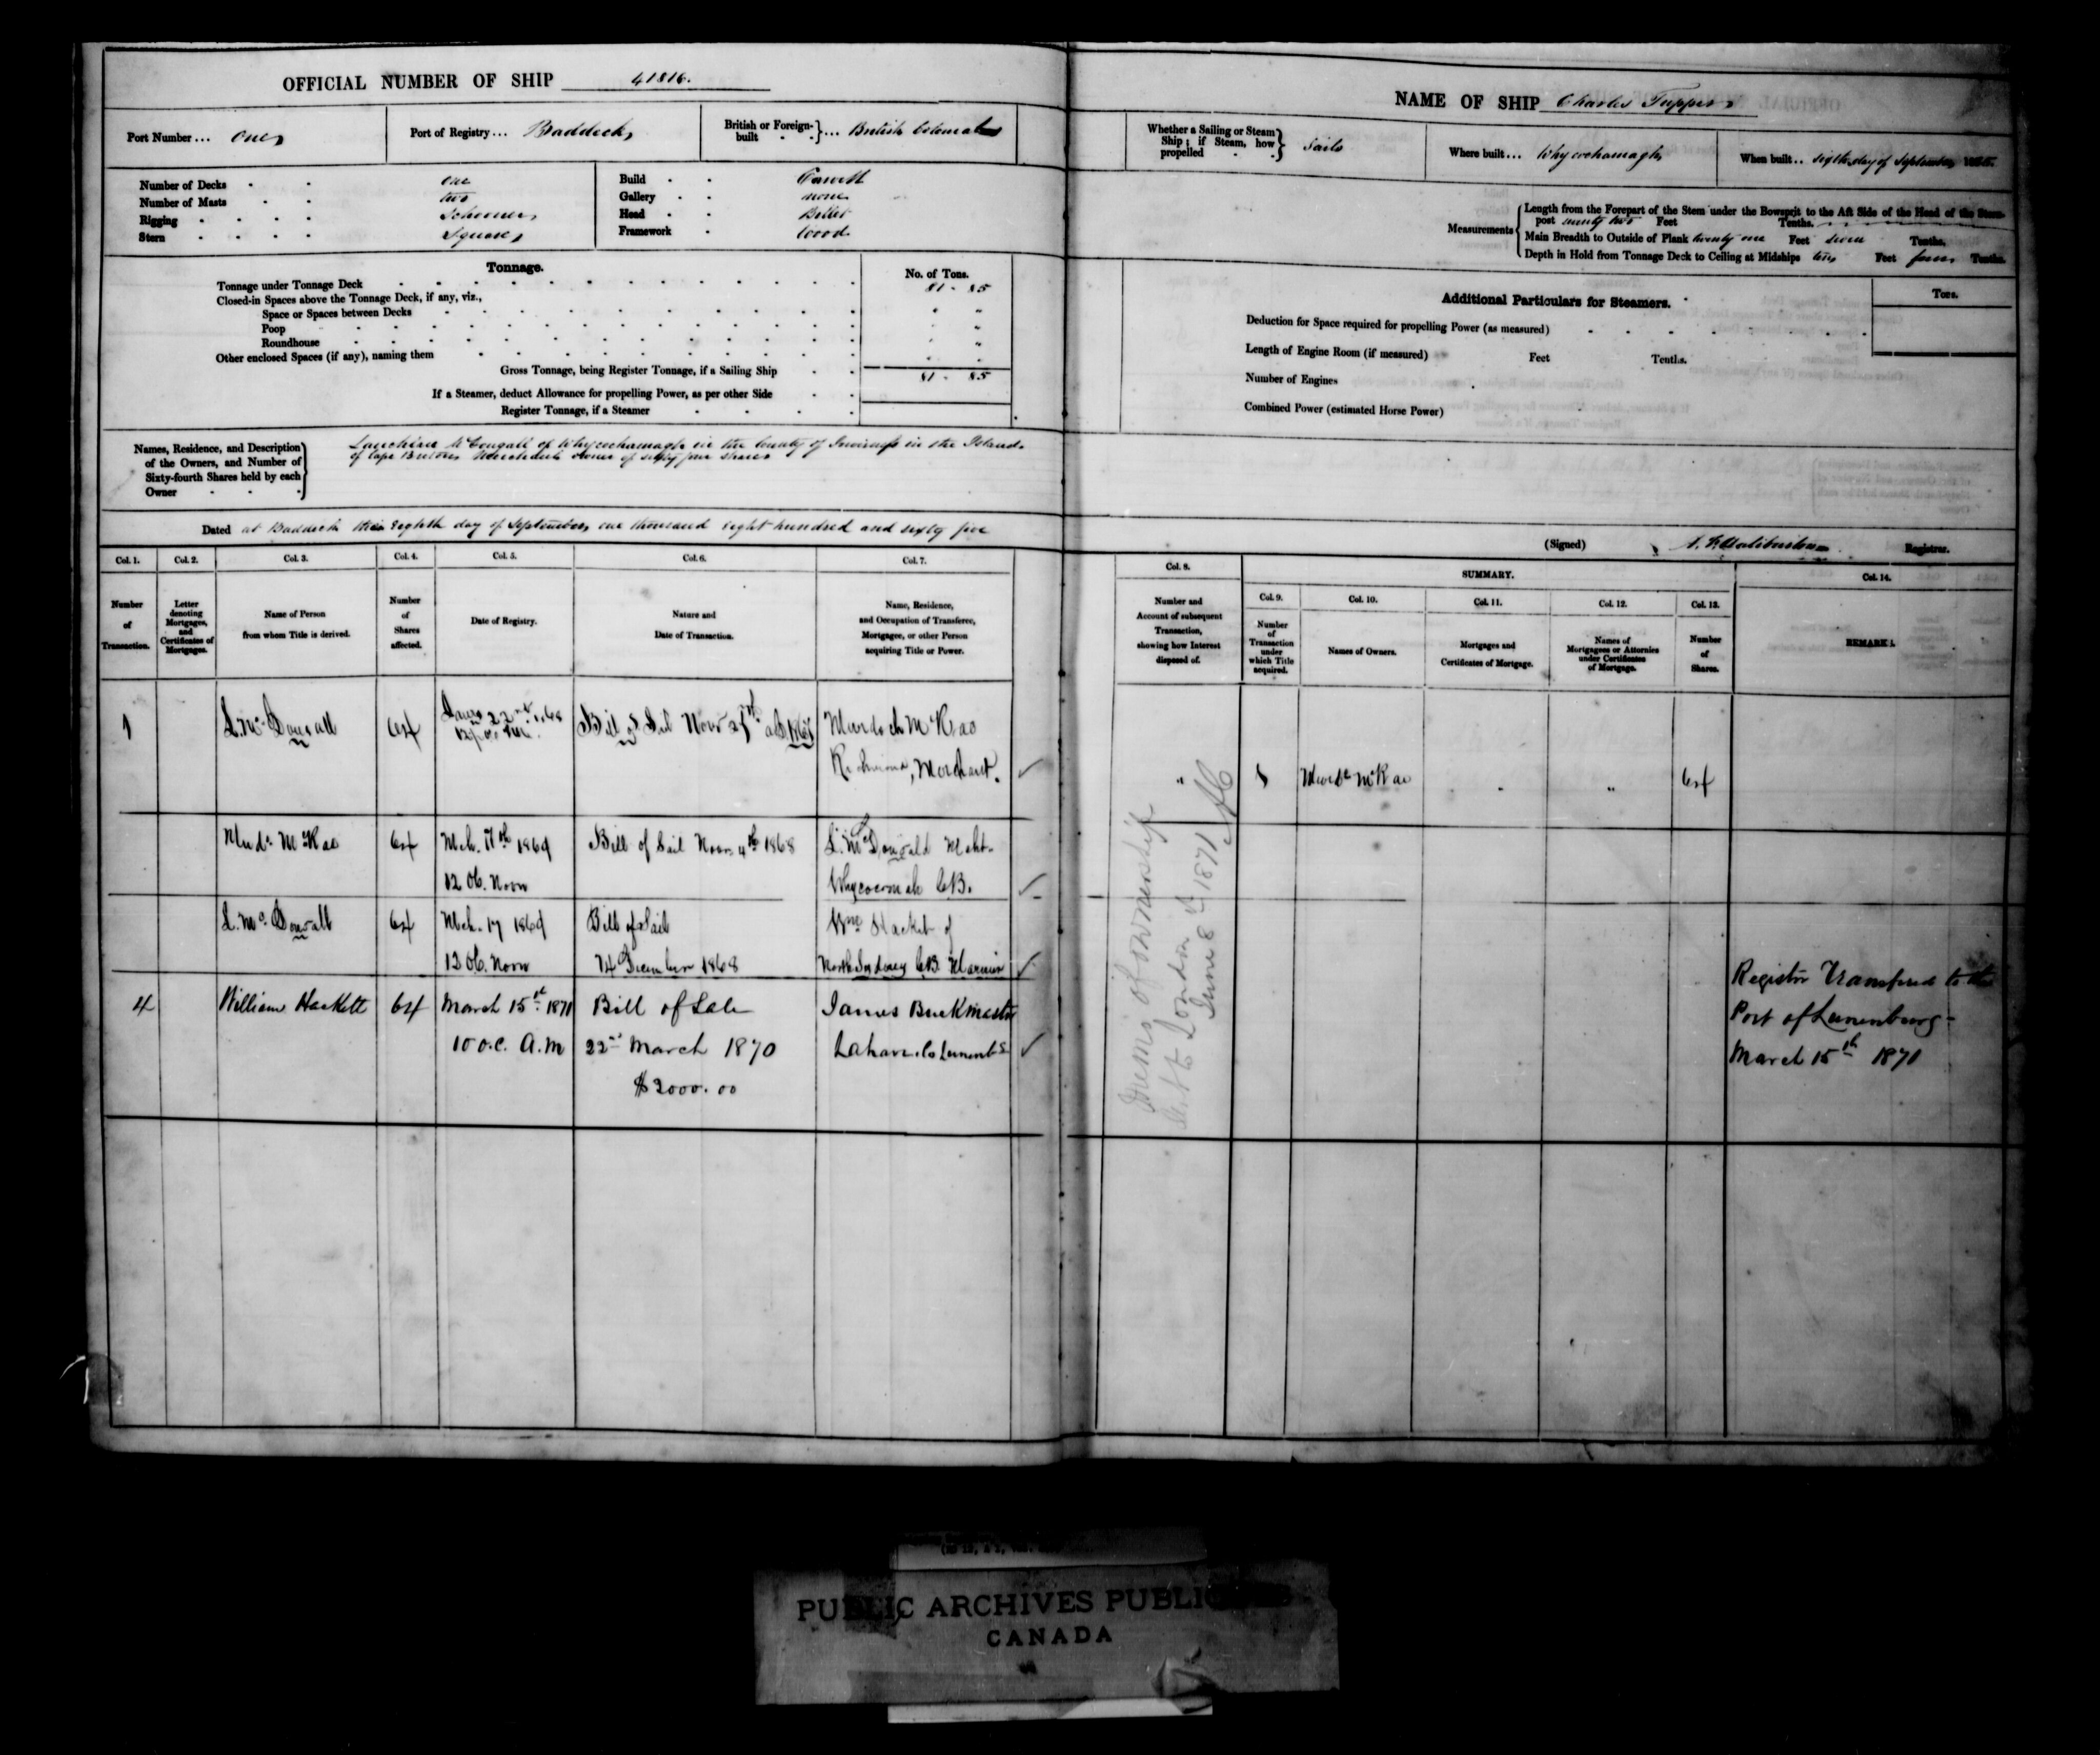 OFFICIAL NUMBER OF SHIP 41816.
Port Number... One
Port of Registry... Baddeck
British or Foreign-built } ... British Colonial
Number of Decks one
Number of Masts two
Rigging Schooner
Stern Square
Build Carvel
Gallery none
Head Billet
Framework Wood
Tonnage.
No. of Tons.
Tonnage under Tonnage Deck 81 - 85
Closed-in Spaces above the Tonnage Deck, if any, viz.,
Space or Spaces between Decks " "
Poop " "
Roundhouse " "
Other enclosed Spaces (if any), naming them
Gross Tonnage, being Register Tonnage, if a Sailing Ship 81 - 85
If a Steamer, deduct Allowance for propelling Power, as per other Side
Register Tonnage, if a Steamer
Names, Residence, and Description
of the Owners, and Number of
Sixty-fourth Shares held by each
Owner
McDougall of Whycocomagh in the County of Inverness in the Island
of Cape Breton Merchant owner of sixty four shares
Dated at Baddeck this Eighth day of September, one thousand Eight hundred and sixty five
Col. 1. Col. 2. Col. 3. Col. 4. Col. 5. Col. 6. Col. 7.
Number of Transaction.
Letter denoting Mortgages, and Certificates of Mortgages.
Name of Person from whom Title is derived.
Number of Shares affected.
Date of Registry.
Nature and Date of Transaction.
Name, Residence, and Occupation of Transferee, Mortgagee, or other Person acquiring Title or Power.
1 L. McDougall 64 22nd 1868 Bill of Sail Novr Murdoch McRae
Merchant.
Murd. McRae 64 Mch. 17th 1869 Bill of Sail Novr 4th 1868 L. McDougald Mcht.
12 Oc. Noon C.B.
L. McDougall 64 Mch. 17 1869 Bill of Sail Wm Hacket of
12 Oc. Noon 14 December 1868 North Sydney C.B. Mariner
4 William Hackett 64 March 15th 1871 Bill of Sale James Buckmaster
10 o.c. A.M 22nd March 1870 Lahave Co Lunenbg
$2000.00
NAME OF SHIP Charles Tupper
Whether a Sailing or Steam Ship; if Steam, how propelled } Sails
Where built... Whycocomagh
When built.. day of September 1865.
Measurements
Length from the Forepart of the Stem under the Bowsprit to the Aft Side of the Head of the Stern-
post ninety two Feet Tenths.
Main Breadth to Outside of Plank twenty one Feet seven Tenths.
Depth in Hold from Tonnage Deck to Ceiling at Midships Feet four Tenths.
Additional Particulars for Steamers.
Tons.
Deduction for Space required for propelling Power (as measured)
Length of Engine Room (if measured) Feet Tenths.
Number of Engines
Combined Power (estimated Horse Power)
(Signed) Haliburton Registrar.
Col. 8. SUMMARY. Col. 14.
Col. 9. Col. 10. Col. 11. Col. 12. Col. 13.
Number and Account of subsequent Transaction, showing how Interest disposed of.
Number of Transaction under which Title acquired.
Names of Owners.
Mortgages and Certificates of Mortgage.
Names of Mortgagees or Attornies under Certificates of Mortgage.
Number of Shares.
REMARKS.
" 1 Murd. McRae " " 64
of ownership
London
June 8th 1871
Register Transfered to the
Port of Lunenburg -
March 15th 1871
PUBLIC ARCHIVES PUBLIQUES
CANADA